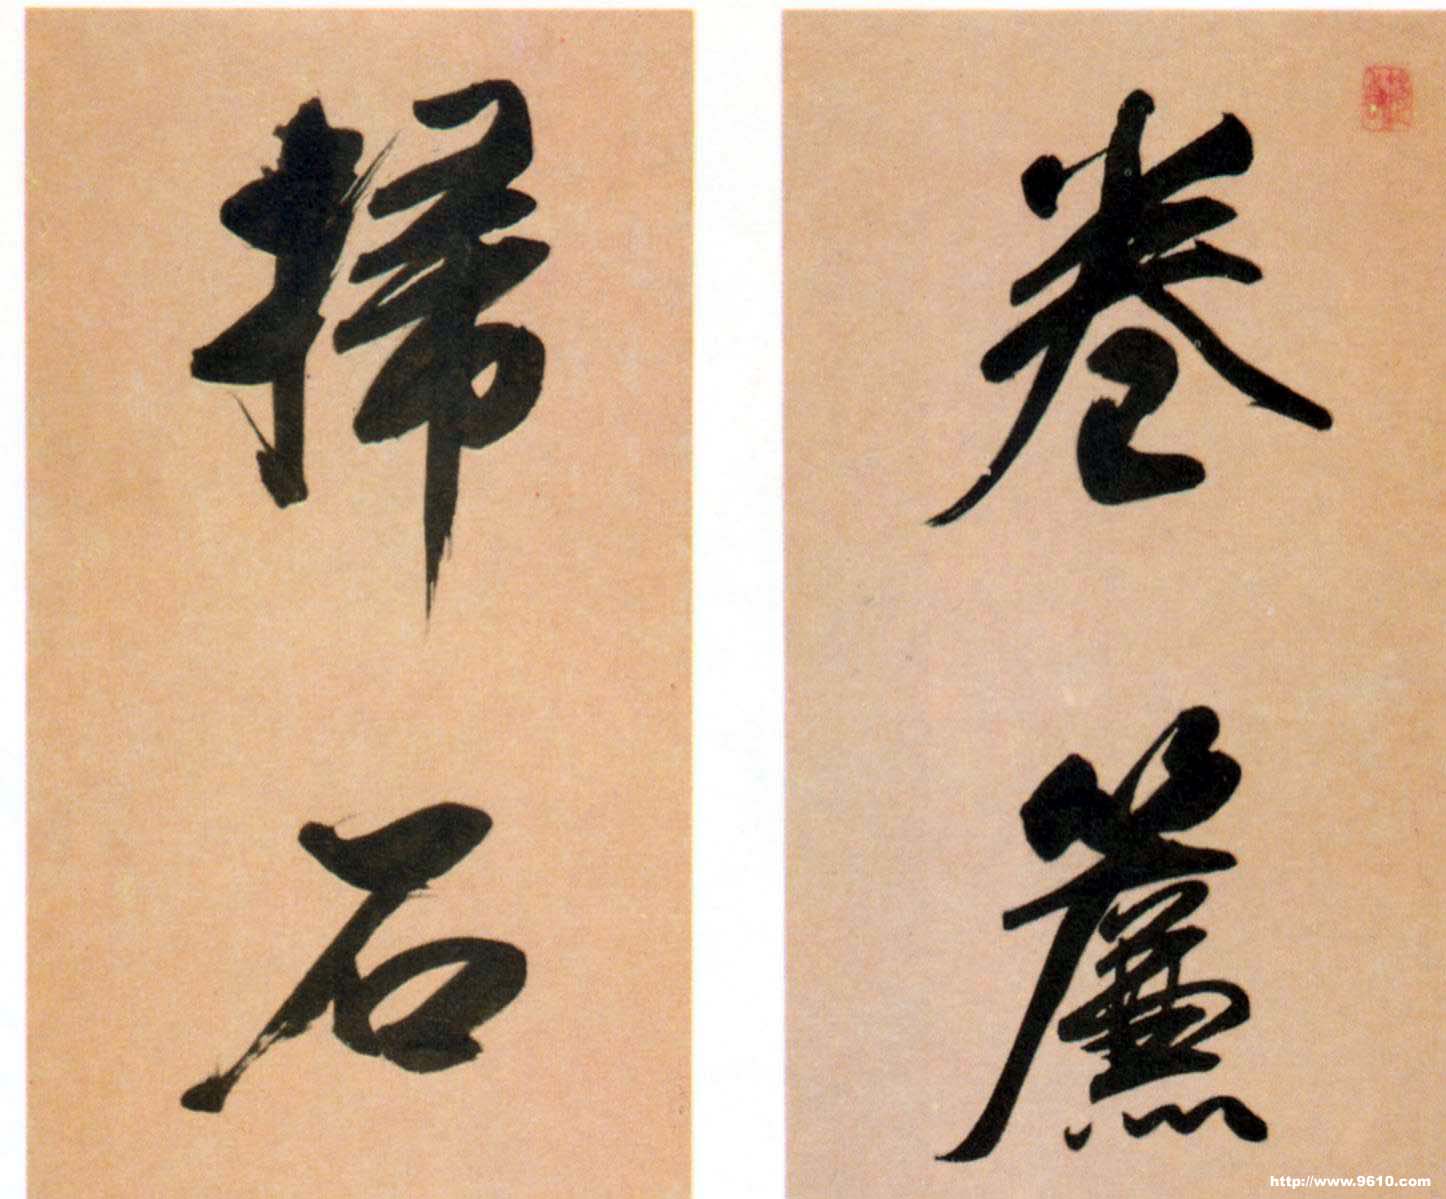 卷簾
掃石
http://www.9610.com